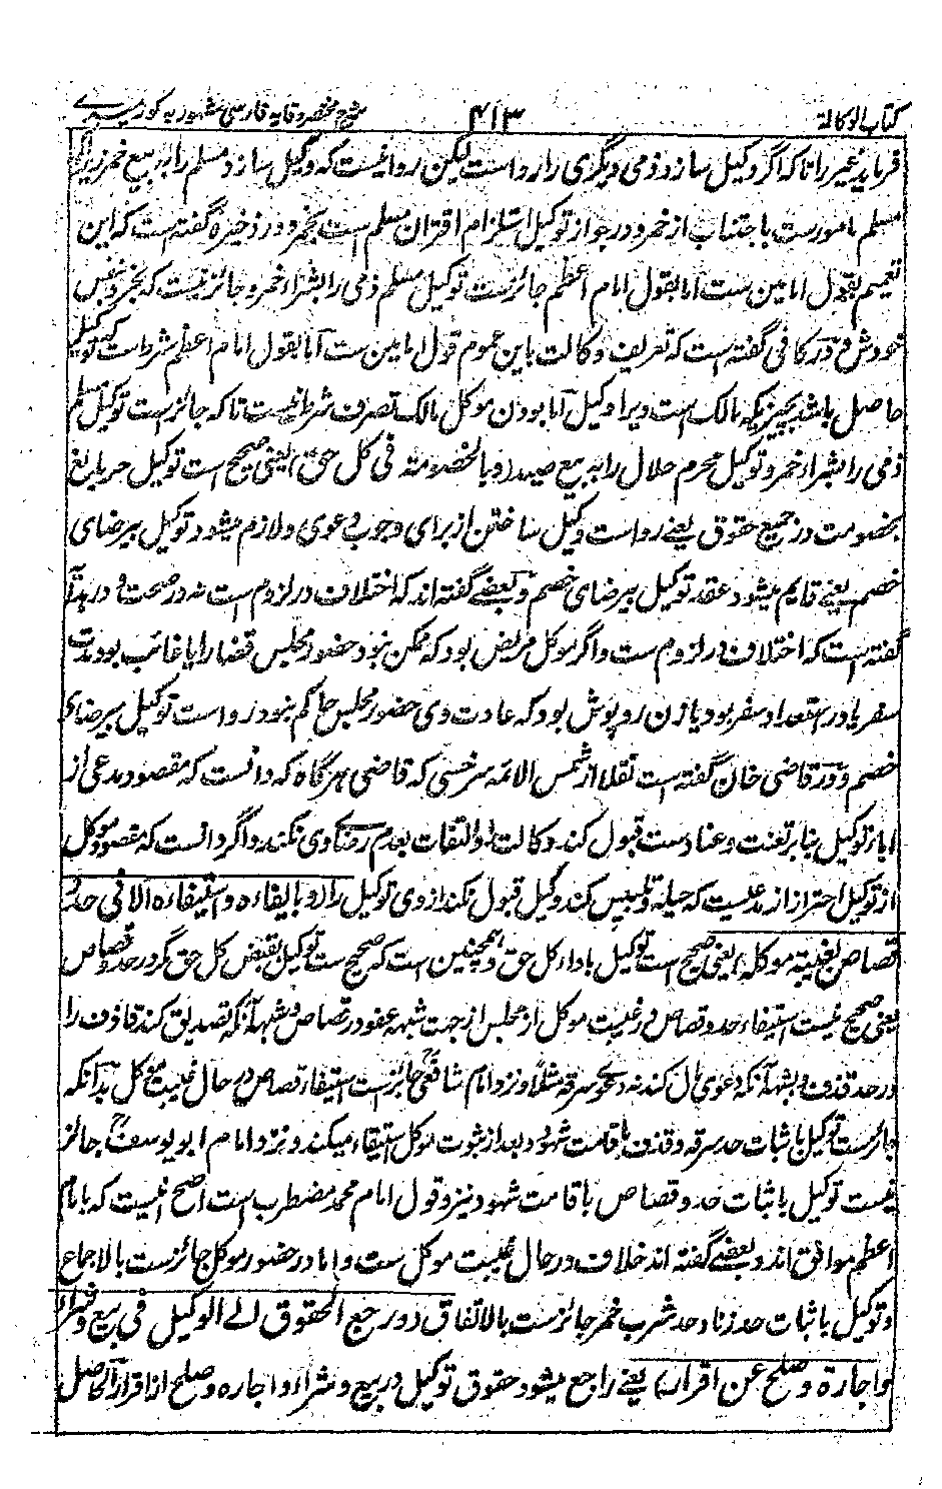 کتاب الوکالة ۴۱۳ شرح مختصر وقایه فارسی مشهور به کور میری
فرماید غیر را تا که اگر وکیل سازد ذمی دیگری را رواست لیکن روا نیست که وکیل سازد مسلم را به بیع خمر زیرا که
مسلم مامورست باجتناب از خمر و در جواز توکیل استلزام اقتران مسلم است بخمر و در ذخیره گفته است که این
تعمیم بقول امامین ست اما بقول امام اعظم جائزست توکیل مسلم ذمی را بشراء خمر و جائز نیست که بخرد بنفس
خودش و در کافی گفته است که تعریف وکالت باین عموم قول امامین ست اما بقول امام اعظم شرط است که توکیل
حاصل باشد بچیزیکه مالک است ویرا وکیل اما بودن موکل مالک تصرف شرط نیست تا که جائزست توکیل مسلم
ذمی را بشراء خمر و توکیل محرم حلال را به بیع صید (و بالخصومة فی کل حق) یعنی صحیح است توکیل حر بالغ
بخصومت در جمیع حقوق یعنے رواست وکیل ساختن از برای وجوب دعوی و لازم میشود توکیل بیرضای
خصم یعنے قایم میشود عقد توکیل بیرضای خصم و بعضے گفته اند که اختلاف در لزوم است نه در صحت و در هدایه
گفته است که اختلاف در لزوم ست و اگر موکل مریض بود که ممکن نبود حضور مجلس قضا را یا غائب بود مدت
سفر یا در استعداد سفر بود یا زن روپوش بود که عادت وی حضور مجلس حاکم نبود رواست توکیل بیرضای
خصم و در قاضی خان گفته است نقلا از شمس الائمه سرخسی که قاضی هرگاه که دانست که مقصود مدعی از
اباء توکیل بنا بر تعنت و عناد ست قبول کند وکالت او التفات بعدم رضای وی نکند و اگر دانست که مقصود موکل
از توکیل احتراز از مدعیست که حیله و تلبیس کند وکیل قبول نکند از وی توکیل را (و بایفاءه و استیفاءه الا فی حد و
قصاص بغیبة موکله) یعنی صحیح است توکیل باداء کل حق و همچنین است که صحیح ست توکیل بقبض کل حق مگر در حد و قصاص
یعنی صحیح نیست استیفاء حد و قصاص در غیبت موکل از مجلس از جهت شبهه عفو در قصاص و شبهه آنکه تصدیق کند قاذف را
در حد قذف و شبهه آنکه دعوی مال کند نه دعوی سرقه مثلا و نزد امام شافعی جائزست استیفاء قصاص در حال غیبت موکل بدآنکه
جائزست توکیل باثبات حد سرقه و قذف باقامت شهود و بعد از ثبوت موکل استیفاء میکند و نزد امام ابو یوسف جائز
نیست توکیل باثبات حد و قصاص باقامت شهود نیز و قول امام محمد مضطرب است اصح اینست که بامام
اعظم موافق اند و بعضے گفته اند خلاف در حال غیبت موکل ست و اما در حضور موکل جائزست بالاجماع
و توکیل باثبات حد زنا و حد شرب خمر جائزست بالاتفاق (و رجع الحقوق الے الوکیل فی بیع و شراء
و اجارة و صلح عن اقرار) یعنے راجع میشود حقوق توکیل در بیع و شراء و اجاره و صلح از اقرار الحاصل